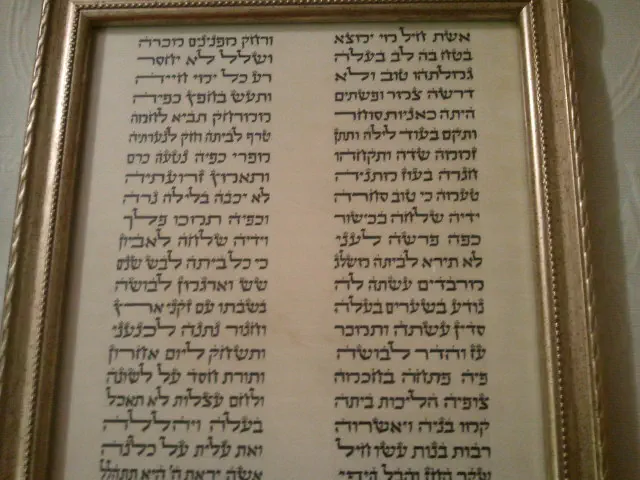 אשת חיל מי ימצא ורחק מפנינים מכרה
בטח בה לב בעלה ושלל לא יחסר
גמלתהו טוב ולא רע כל ימי חייה
דרשה צמר ופשתים ותעש בחפץ כפיה
היתה כאניות סוחר ממרחק תביא לחמה
ותקם בעוד לילה ותתן טרף לביתה וחק לנערותיה
זממה שדה ותקחהו מפרי כפיה נטעה כרם
חגרה בעוז מתניה ותאמץ זרועתיה
טעמה כי טוב סחרה לא יכבה בלילה נרה
ידיה שלחה בכישור וכפיה תמכו פלך
כפה פרשה לעני וידיה שלחה לאביון
לא תירא לביתה משלג כי כל ביתה לבש שנים
מרבדים עשתה לה שש וארגמן לבושה
נודע בשערים בעלה בשבתו עם זקני ארץ
סדין עשתה ותמכר וחגור נתנה לכנעני
עז והדר לבושה ותשחק ליום אחרון
פיה פתחה בחכמה ותורת חסד על לשונה
צופיה הליכות ביתה ולחם עצלות לא תאכל
קמו בניה ויאשרוה בעלה ויהללה
רבות בנות עשו חיל ואת עלית על כלנה
שקר החן והבל היופי אשה יראת ה' היא תתהלל